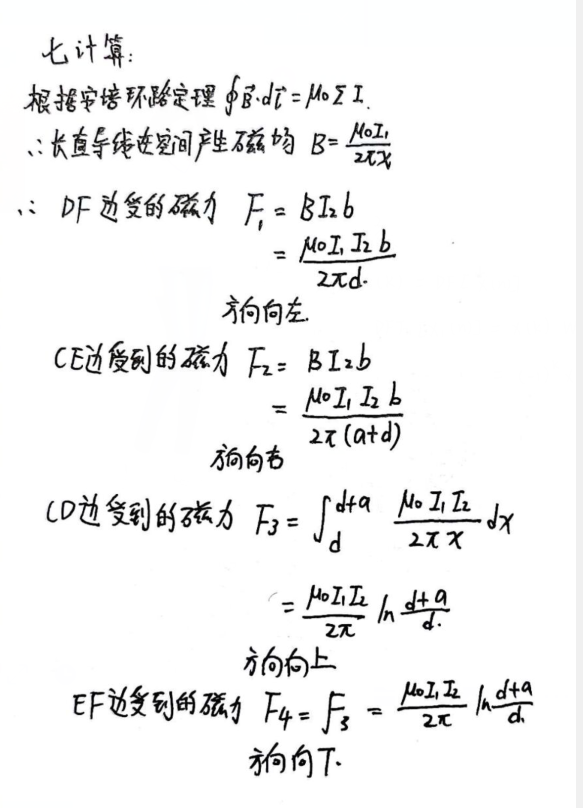 七计算:
根据安培环路定理 ∮B⃗·dl⃗ = μ₀ΣI.
∴长直导线在空间产生磁场 B = μ₀I₁/2πx
∴ DF边受的磁力 F₁ = BI₂b
= μ₀I₁I₂b/2πd.
方向向左.
CE边受到的磁力 F₂ = BI₂b
= μ₀I₁I₂b/2π(a+d)
方向向右
CD边受到的磁力 F₃ = ∫_d^{d+a} μ₀I₁I₂/2πx dx
= μ₀I₁I₂/2π ln d+a/d.
方向向上
EF边受到的磁力 F₄ = F₃ = μ₀I₁I₂/2π ln d+a/d.
方向向下.